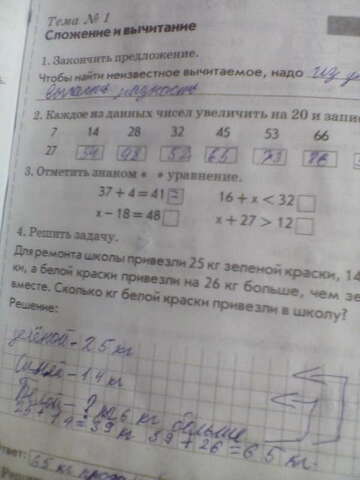 Тема № 1
Сложение и вычитание
1. Закончить предложение.
Чтобы найти неизвестное вычитаемое, надо из у
вычесть разность
2. Каждое из данных чисел увеличить на 20 и запис
7 14 28 32 45 53 66
27 34 48 52 65 73 86
3. Отметить знаком « » уравнение.
37 + 4 = 41 16 + x < 32
x – 18 = 48 x + 27 > 12
4. Решить задачу.
Для ремонта школы привезли 25 кг зеленой краски, 14
ки, а белой краски привезли на 26 кг больше, чем зе
вместе. Сколько кг белой краски привезли в школу?
Решение:
зелёной – 25 кг
Синей – 14 кг
Белой – ? на 26 кг больше
25 + 14 = 39 кг 39 + 26 = 65 кг.
Ответ: 65 кг